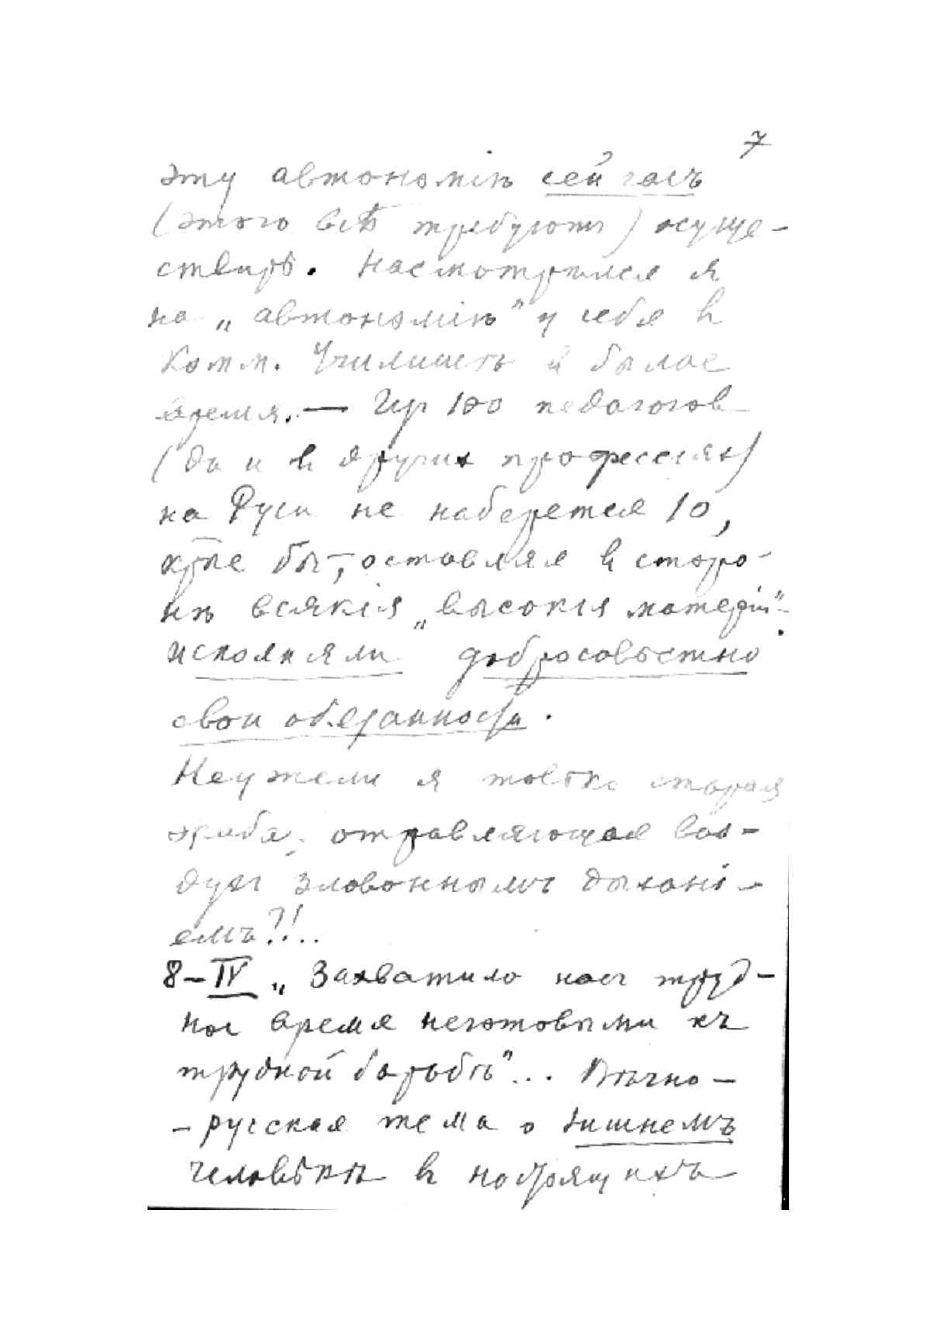 7
эту автономію сейчасъ
(этого всѣ требуютъ) осуще-
ствить. Насмотрился я
на „автономію" у себя в
Комм. Училищѣ в былое
время. — Из 100 педагогов
(да и в других профессіях)
на Руси не наберется 10,
кт̅ые бы, оставляя в сторо-
нѣ всякія „высокія матеріи"
исполняли добросовѣстно
свои обязанности.
Неужели я только старая
жаба, отравляющая воз-
дух зловоннымъ дыхані-
емъ?!..
8–IV „Захватило нас труд-
ное время неготовыми къ
трудной борьбѣ"... Вѣчно-
-русская тема о лишнемъ
человѣкѣ в настоящихъ